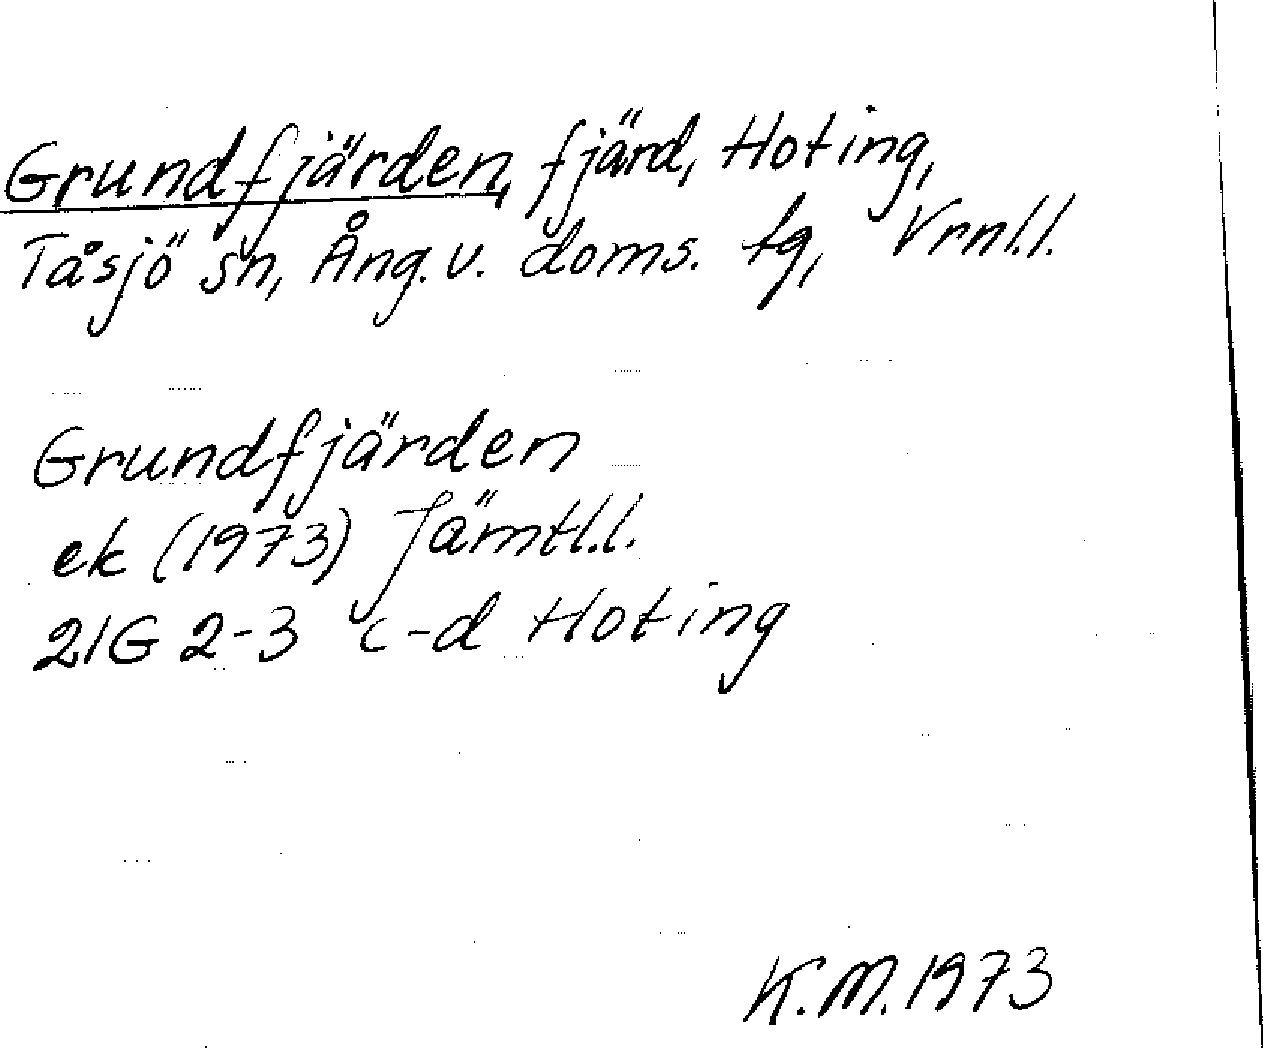 Grundfjärden, fjärd, Hoting,
Tåsjö sn, Ång. v. doms. tg, Vrnl.l.
Grundfjärden
ek (1973) Jämtl.l.
21G 2-3 c-d Hoting
K.M. 1973